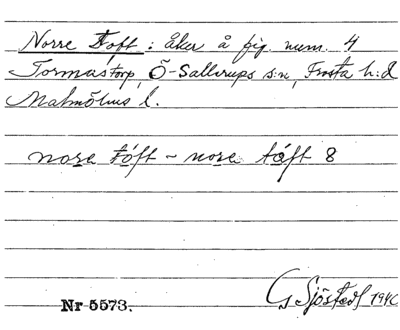 Norre Toft : åker å fig. num. 4
Tormastorp, Ö-Sallerups s:n, Frosta h:d
Malmöhus l.
nore tóft – nore tóft 8
G Sjöstedt 1940
Nr 5573.